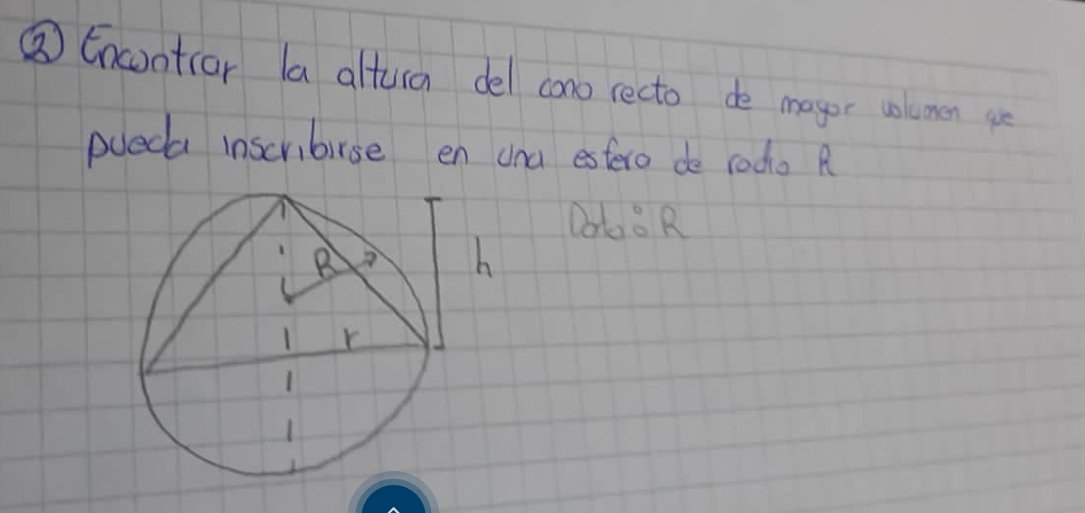 ② Encontrar la altura del cono recto de mayor volumen que
pueda inscribirse en una esfera de radio R
Dato: R
R
h
r